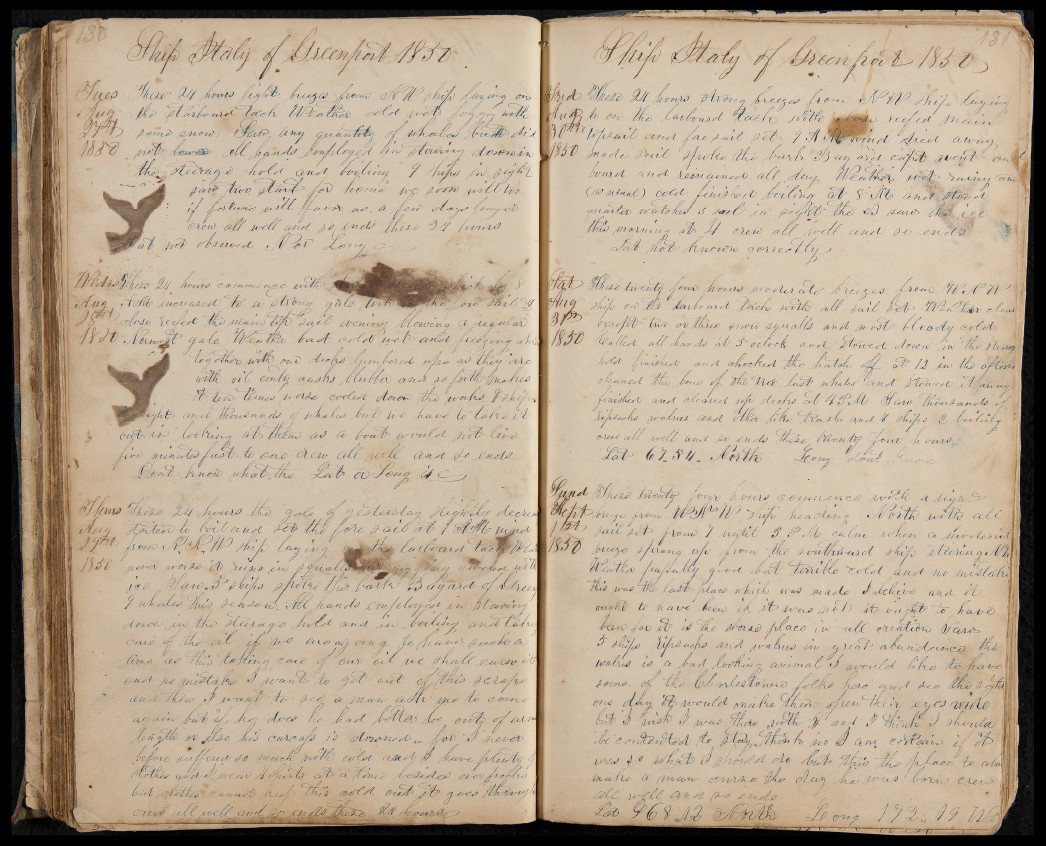 130
Ship Italy of Greenport 1850
Tues
Aug
27th
1850
These 24 hours light breezes from NW ship laying on
the starboard tack Weather cold wet foggy with
some snow. Saw any quantity of whales but did
not lower All hands employed in stowing down in
the steerage hold and boiling 7 ships in sight
saw two start for home we soon will too
if fortune will favor us a few days longer
crew all well and so ends these 24 hours
Lat not observed Nor Long
Wedns
Aug
28th
1850
These 24 hours commence with
AM increased to a strong gale
close reefed the main top sail evening blowing a regular
gale Weather bad cold wet and freezing
together with our decks lumbered up as they are
with oil empty casks blubber and so forth makes
it ten times worse cooled down the works 8 ships
sight and thousands of whales but we have to take it
out in looking at them as a boat would not live
five minutes fast to one crew all well and so ends
Dont know what the Lat or Long is
Thurs
Aug
29th
1850
These 24 hours the gale of yesterday slightly
started to boil and set the fore sail at 1 AM
from NNW ship laying the larboard tack
never worse it rains in squalls covered with
ice Saw 5 ships spoke the bark Bayard of
9 whales this season. All hands employed in stowing
down in the steerage hold and in boiling and
care of the oil if we are a going to have such a
time as this taking care of our oil we shall earn it
and no mistake I want to get out of this scrape
and then I want to see a man ask me to come
again but if he does he had better be out of arms
length or else his carcass is doomed. for I never
before suffered so much with cold and I have plenty of
clothes and I wear 4 shirts at a time besides two frocks
but clothes cannot keep this cold out it goes through
crew all well and so ends these 24 hours
131
Ship Italy of Greenport 1850
Frid
Aug
30th
1850
These 24 hours strong breezes from NNW ship laying
to on the larboard tack with close reefed main
topsail and foresail set. 9 AM wind died away
made sail spoke the bark Bayard capt went on
board and remained all day. Weather wet rainy and
(as usual) cold finished boiling at 8 PM and stood
quarter watches 5 sail in sight the saw the ice
this morning at 4 crew all well and so ends
Lat not known correctly
Sat
Aug
31st
1850
These twenty four hours moderate breezes from WNW
ship on the larboard tack with all sail set Weather clear
except two or three snow squalls and most bloody cold
Called all hands at 5 oclock and stowed down in the steerage
hold finished and chocked the hatch off at 12 in the afternoon
cleaned the bone of the two last whales and stowed it away
finished and cleared up decks at 4 PM Saw thousands of
ripsacks walrus and other like trash and 4 ships 2 boiling
crew all well and so ends these twenty four hours
Lat 67..34.. North Long
Sund
Sept
1st
1850
These twenty four hours commence with a light
from WNW ship heading North with all
sail set from 7 until 5 PM calm when a moderate
breeze sprung up from the southward ship steering
Weather passably good but terrible cold and no mistake
this was the last place which was made I believe and it
ought to have been if it was not it ought to have
been for it is the worse place in all creation Saw
5 ships ripsacks and walrus in great abundance the
walrus is a bad looking animal I would like to have
some of the Charlestown folks here and see the sights
one day it would make them open their eyes wide
but I wish I was there with and I think I should
be contented to stay. think no I am certain if it
was so what I should do but this the place to
make a man curse the day he was born crew
all well and so ends
Lat 68..12 North Long 172..19 W